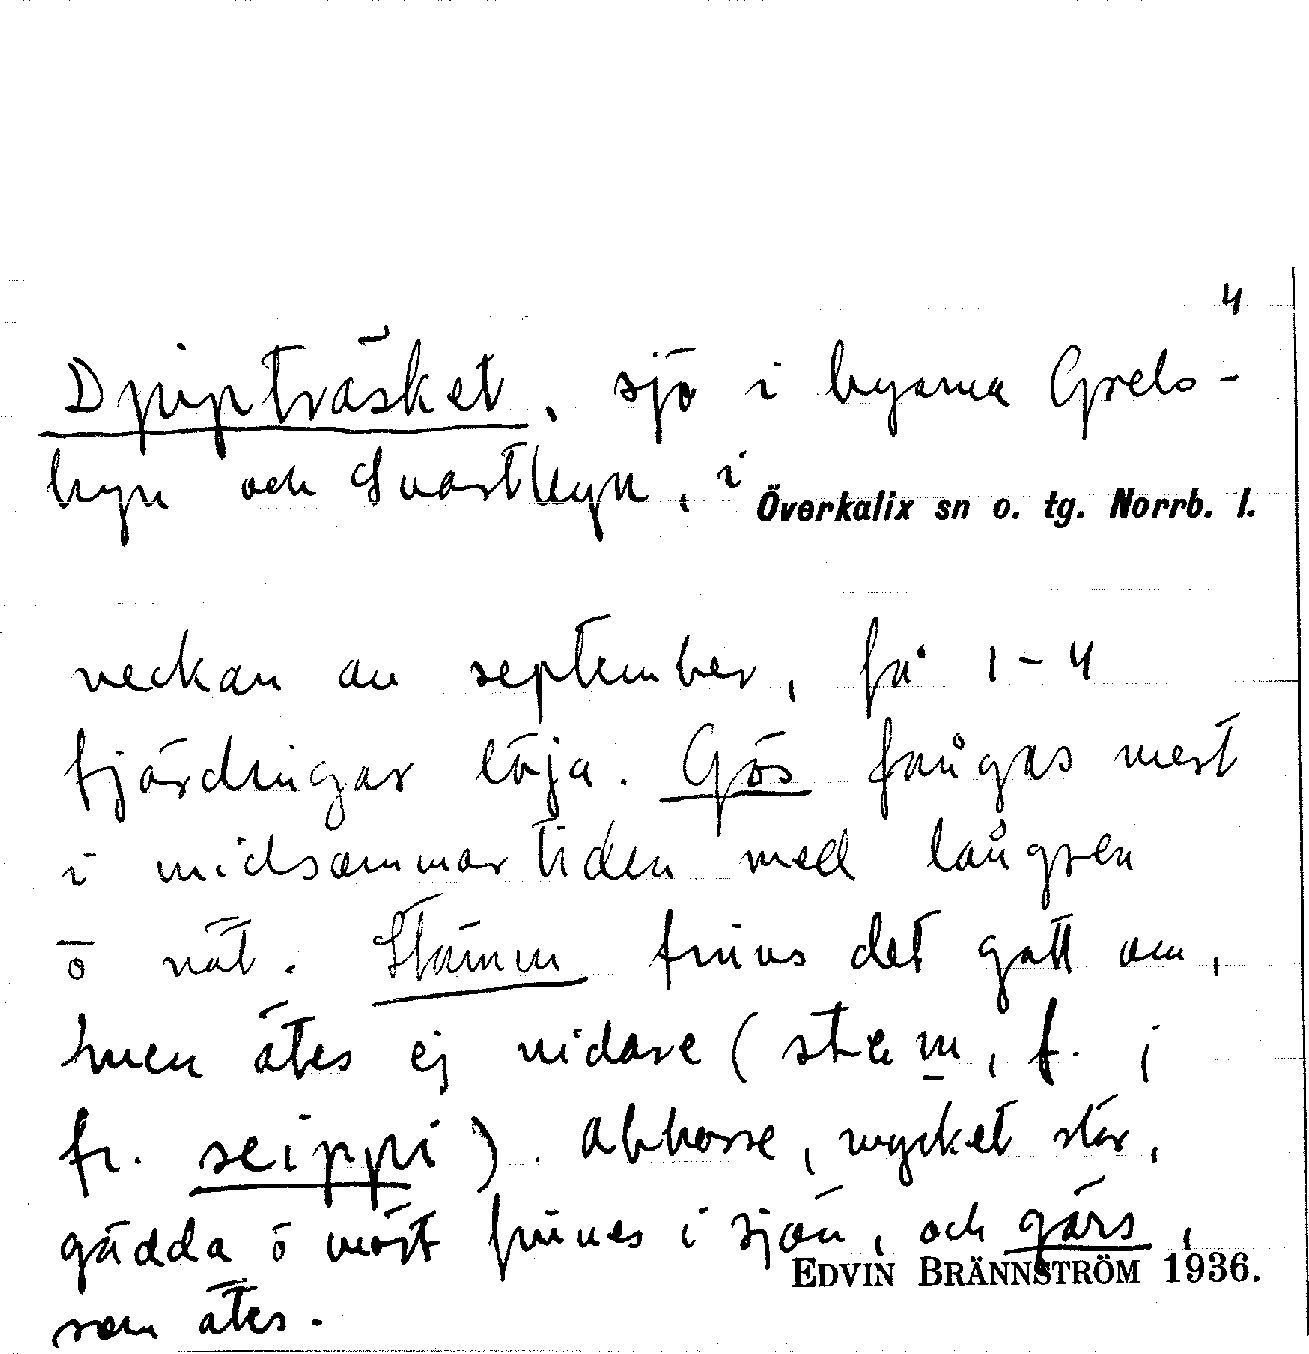 4
Djupträsket, sjö i byarna Grels-
byn och Svartbyn, i Överkalix sn o. tg. Norrb. l.
veckan av september, få 1-4
fjärdingar löja. Gös fångas mest
i midsommartiden med långrev
o nät. Stämm finns det gott om,
men ätes ej vidare (stem, f. ;
fi. seippi). Abborre, mycket stor,
gädda o mört finnes i sjön, och gärs,
EDVIN BRÄNNSTRÖM 1936.
som ätes.